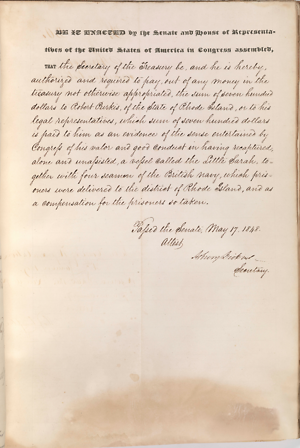 BE IT ENACTED by the Senate and House of Representa-
tives of the United States of America in Congress assembled,
THAT the Secretary of the Treasury be, and he is hereby,
authorized and required to pay, out of any money in the
treasury not otherwise appropriated, the sum of seven hundred
dollars to Robert Perkis, of the State of Rhode Island, or to his
legal representatives, which sum of seven hundred dollars
is paid to him as an evidence of the sense entertained by
Congress of his valor and good conduct in having recaptured,
alone and unassisted, a vessel called the Little Sarah, to-
gether with four seamen of the British navy, which pris-
oners were delivered to the district of Rhode Island, and as
a compensation for the prisoners so taken.
Passed the Senate, May 17, 1848.
Attest,
Secretary.